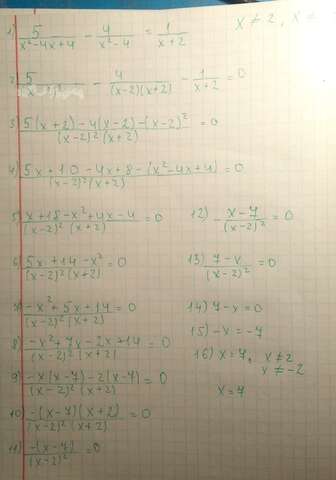 1) 5/(x²-4x+4) - 4/(x²-4) = 1/(x+2)   x ≠ 2, x =
2) 5/(x-2)² - 4/((x-2)(x+2)) - 1/(x+2) = 0
3) (5(x+2)-4(x-2)-(x-2)²)/((x-2)²(x+2)) = 0
4) (5x+10-4x+8-(x²-4x+4))/((x-2)²(x+2)) = 0
5) (x+18-x²+4x-4)/((x-2)²(x+2)) = 0
6) (5x+14-x²)/((x-2)²(x+2)) = 0
7) (-x²+5x+14)/((x-2)²(x+2)) = 0
8) (-x²+7x-2x+14)/((x-2)²(x+2)) = 0
9) (-x(x-7)-2(x-7))/((x-2)²(x+2)) = 0
10) (-(x-7)(x+2))/((x-2)²(x+2)) = 0
11) (-(x-7))/(x-2)² = 0
12) -(x-7)/(x-2)² = 0
13) (7-x)/(x-2)² = 0
14) 7-x=0
15) -x=-7
16) x=7, x≠2
x≠-2
x=7